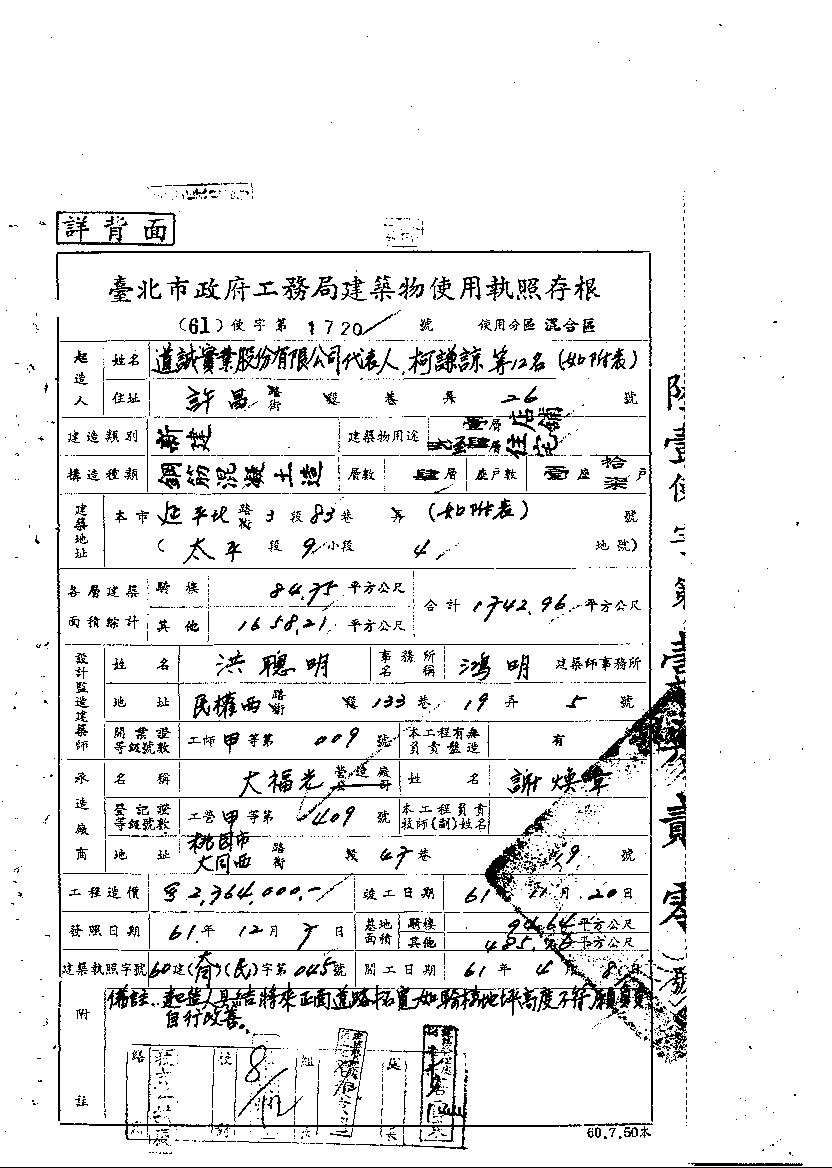 詳背面
臺北市政府工務局建築物使用執照存根
(61)使字第1720號 使用分區 混合區
起造人 姓名 道誠實業股份有限公司代表人.柯謙諒等12名(如附表)
住址 許昌路街 段 巷 弄 26 號
建造類別 新建 建築物用途 壹層店舖 貳至肆層住宅
構造種類 鋼筋混凝土造 層數 肆層 座戶數 壹座 拾柒戶
建築地址 本市 延平北路街 3段83巷 弄(如附表) 號
(太平段9小段 4 地號)
各層建築面積綜計 騎樓 84.75平方公尺 合計 1742.96平方公尺
其他 1658.21平方公尺
設計監造建築師 姓名 洪聰明 事務所名稱 鴻明 建築師事務所
地址 民權西路街 段133巷19弄5號
開業證等級號數 工師甲等第009號 本工程有無負責監造 有
承造廠商 名稱 大福光營造廠公司 姓名 謝煥章
登記證等級號數 工營甲等第0409號 本工程負責技師(副)姓名
地址 桃園市大同西路街 段47巷 19號
工程造價 $2,364,000.- 竣工日期 61年11月20日
發照日期 61年12月7日 基地面積 騎樓 94.64平方公尺
其他 485.96平方公尺
建築執照字號 60建(大同)(民)字第045號 開工日期 61年4月8日
附註 備註.起造人具結將來正面道路拓寬如騎樓地坪高度不符願負責
自行改善。
8/12
60.7.50本
陸壹使字第壹柒貳零(號)